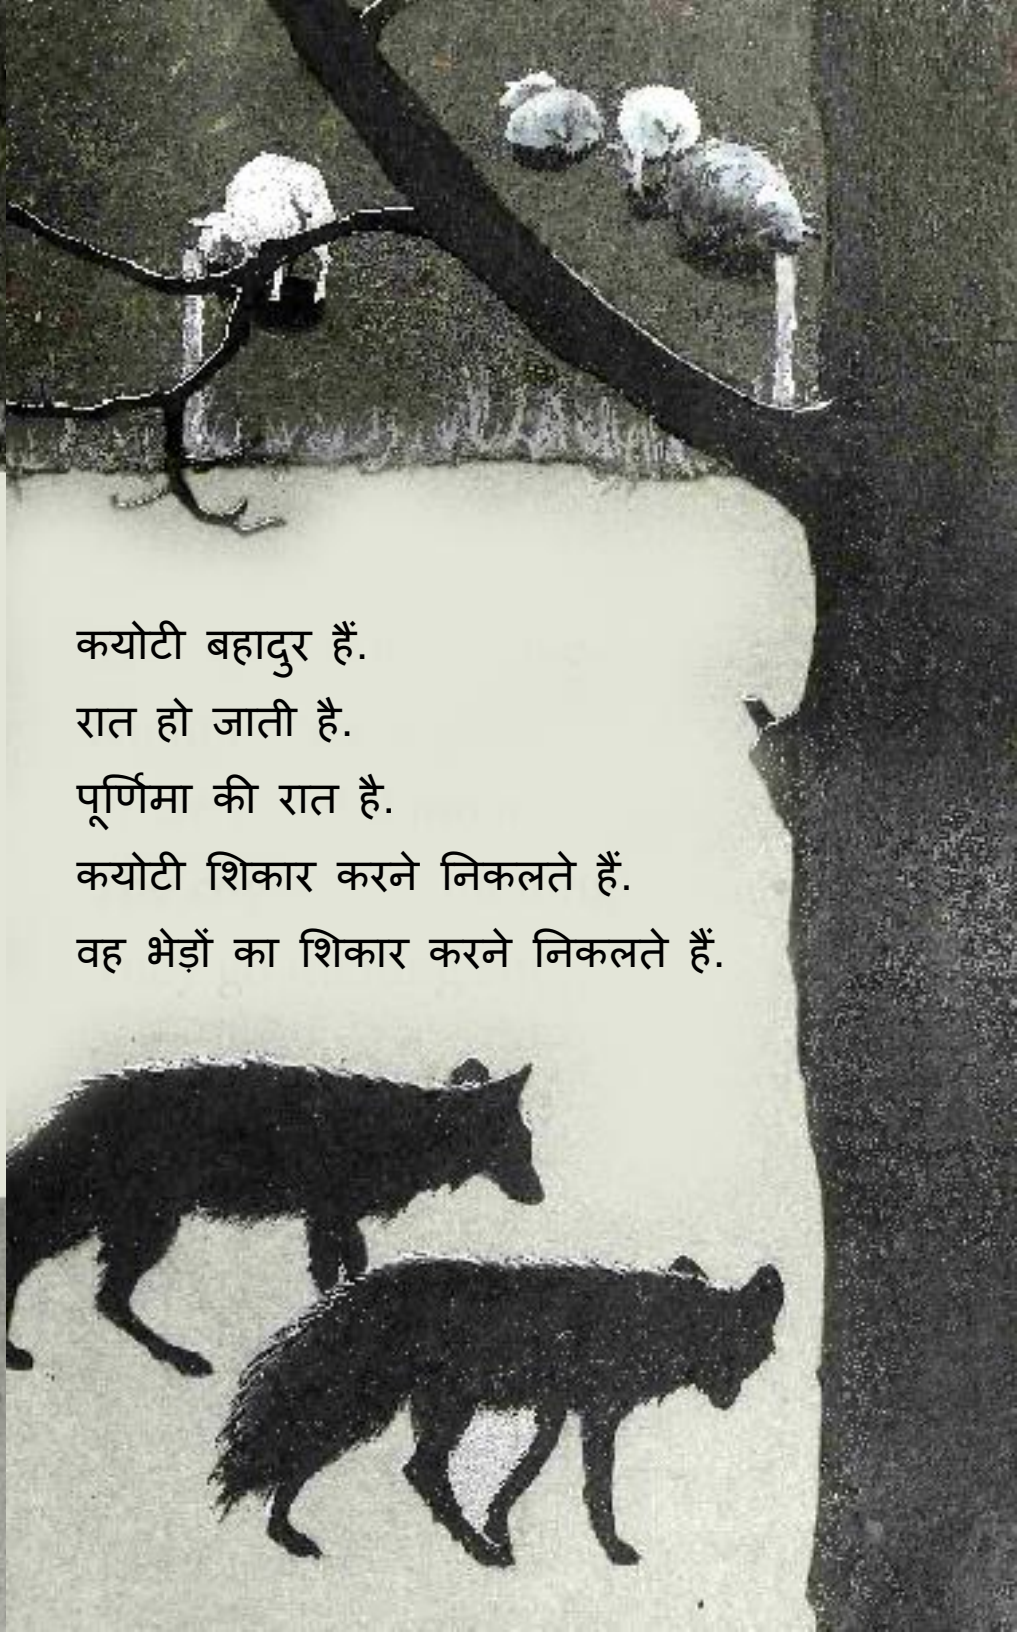 कयोटी बहादुर हैं.
रात हो जाती है.
पूर्णिमा की रात है.
कयोटी शिकार करने निकलते हैं.
वह भेड़ों का शिकार करने निकलते हैं.